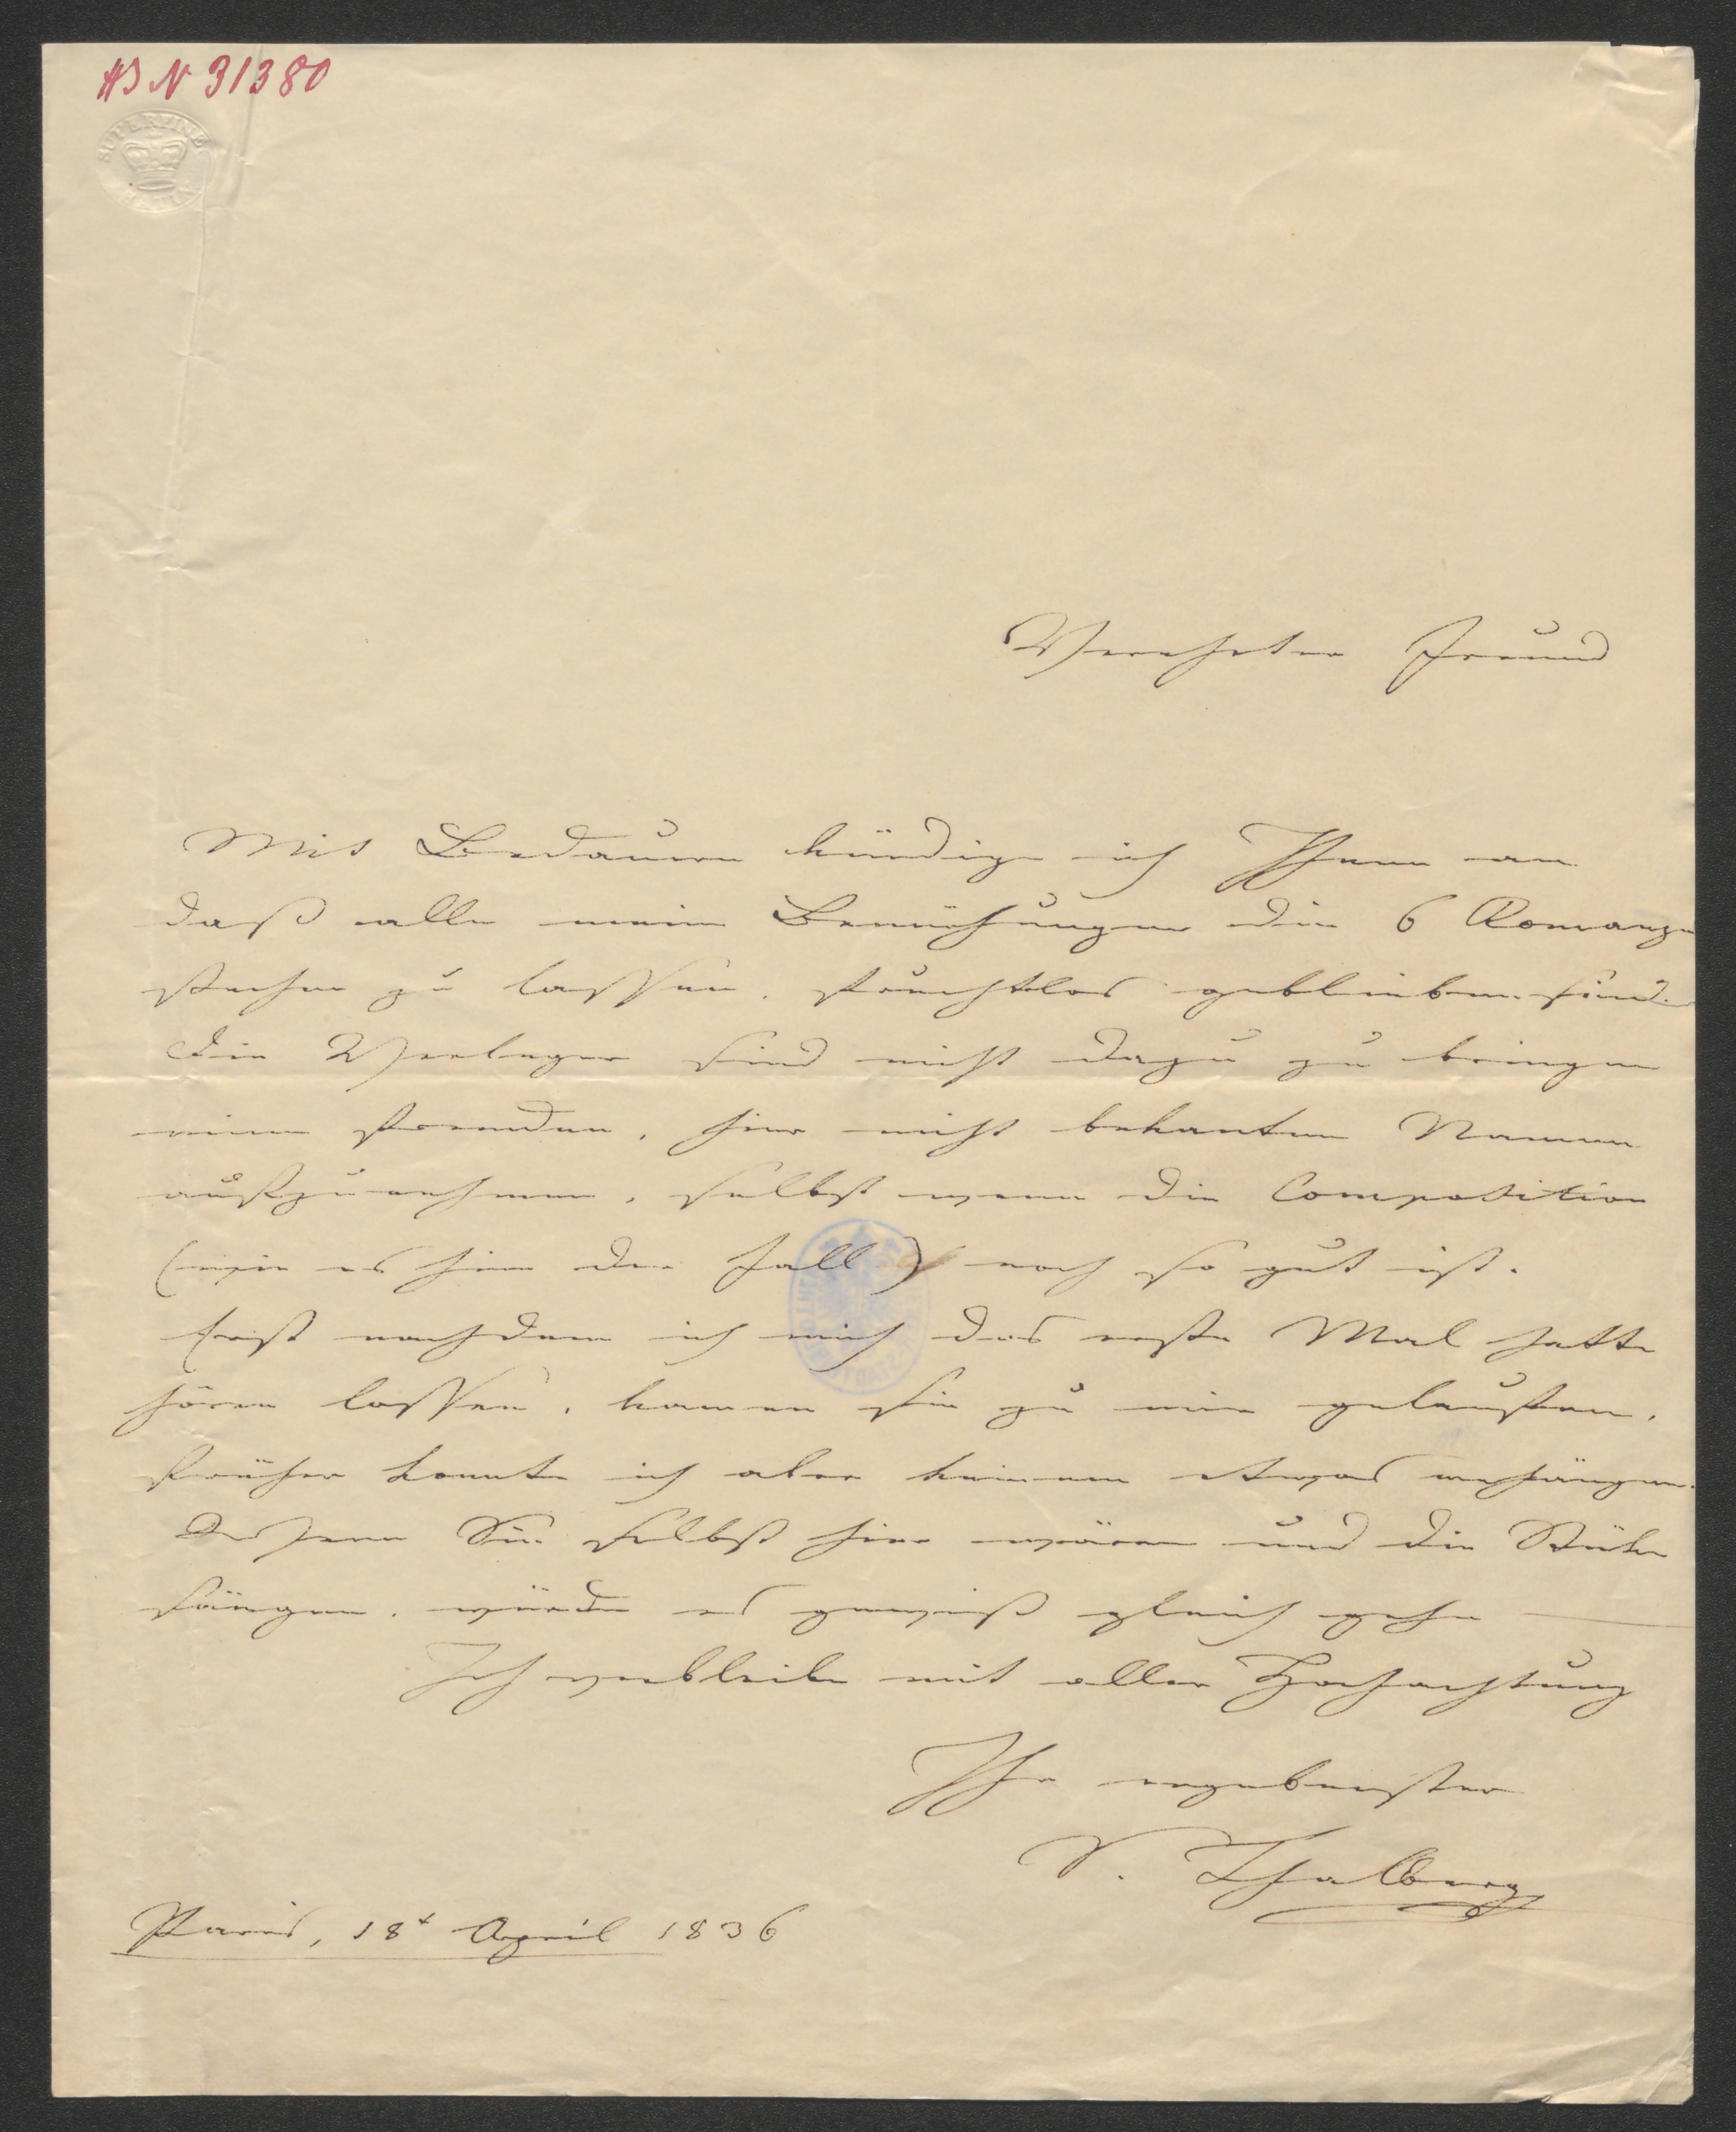 HI N 31380
SUPERFINE
Verehrter Freund
Mit Bedauern kündige ich Ihnen an
daß alle meine Bemühungen die 6 Romanzen
stechen zu lassen, fruchtlos geblieben sind.
Die Verleger sind nicht dazu zu bringen
einen fremden, hier nicht bekanten Namen
aufzunehmen, selbst wenn die Composition
(wie es hier der Fall) noch so gut ist.
Erst nachdem ich mich das erste Mal hatte
hören lassen, kamen sie zu mir gelaufen,
früher konnte ich aber keinem etwas anhängen.
Wenn Sie selbst hier wären und die Stücke
sängen, würde es gewiß gleich gehn —
Ich verbleibe mit aller Hochachtung
Ihr ergebenster
S. Thalberg
Paris, 18t April 1836